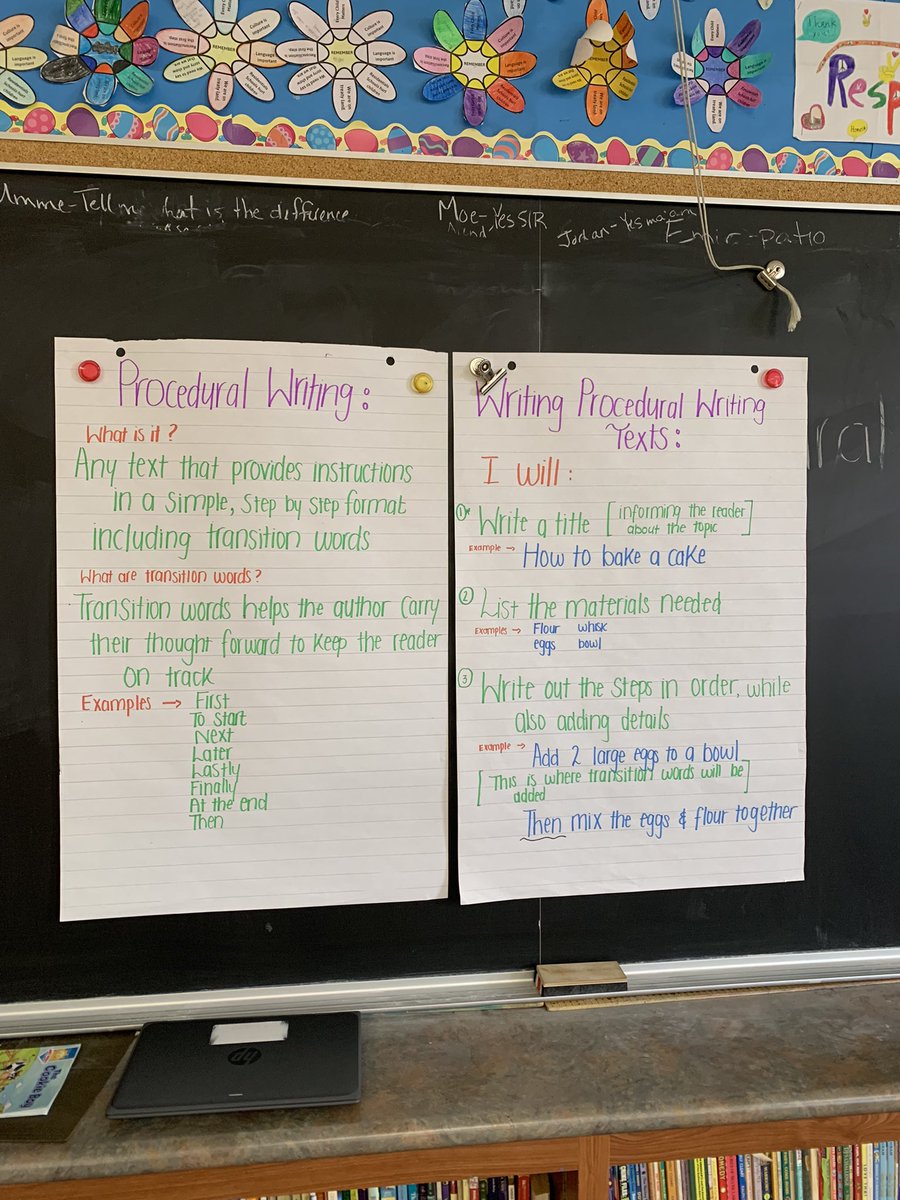 REMEMBER
Culture is important
Language is important
Every Child Matters
We are on treaty land
Thank you
Resp
Umme-Tell m hat is the difference
Moe-Yes SIR
Jordan-Yes majam
Emir-patio
ral
Procedural Writing:
What is it?
Any text that provides instructions
in a simple, step by step format
including transition words
What are transition words?
Transition words helps the author carry
their thought forward to keep the reader
on track
Examples → First
To Start
Next
Later
Lastly
Finally
At the end
Then
Writing Procedural Writing
Texts:
I will:
① Write a title [informing the reader
about the topic]
Example → How to bake a cake
② List the materials needed
Examples → Flour whisk
eggs bowl
③ Write out the steps in order, while
also adding details
Example → Add 2 large eggs to a bowl
[This is where transition words will be
added]
Then mix the eggs & flour together
hp
The Cookie Boy